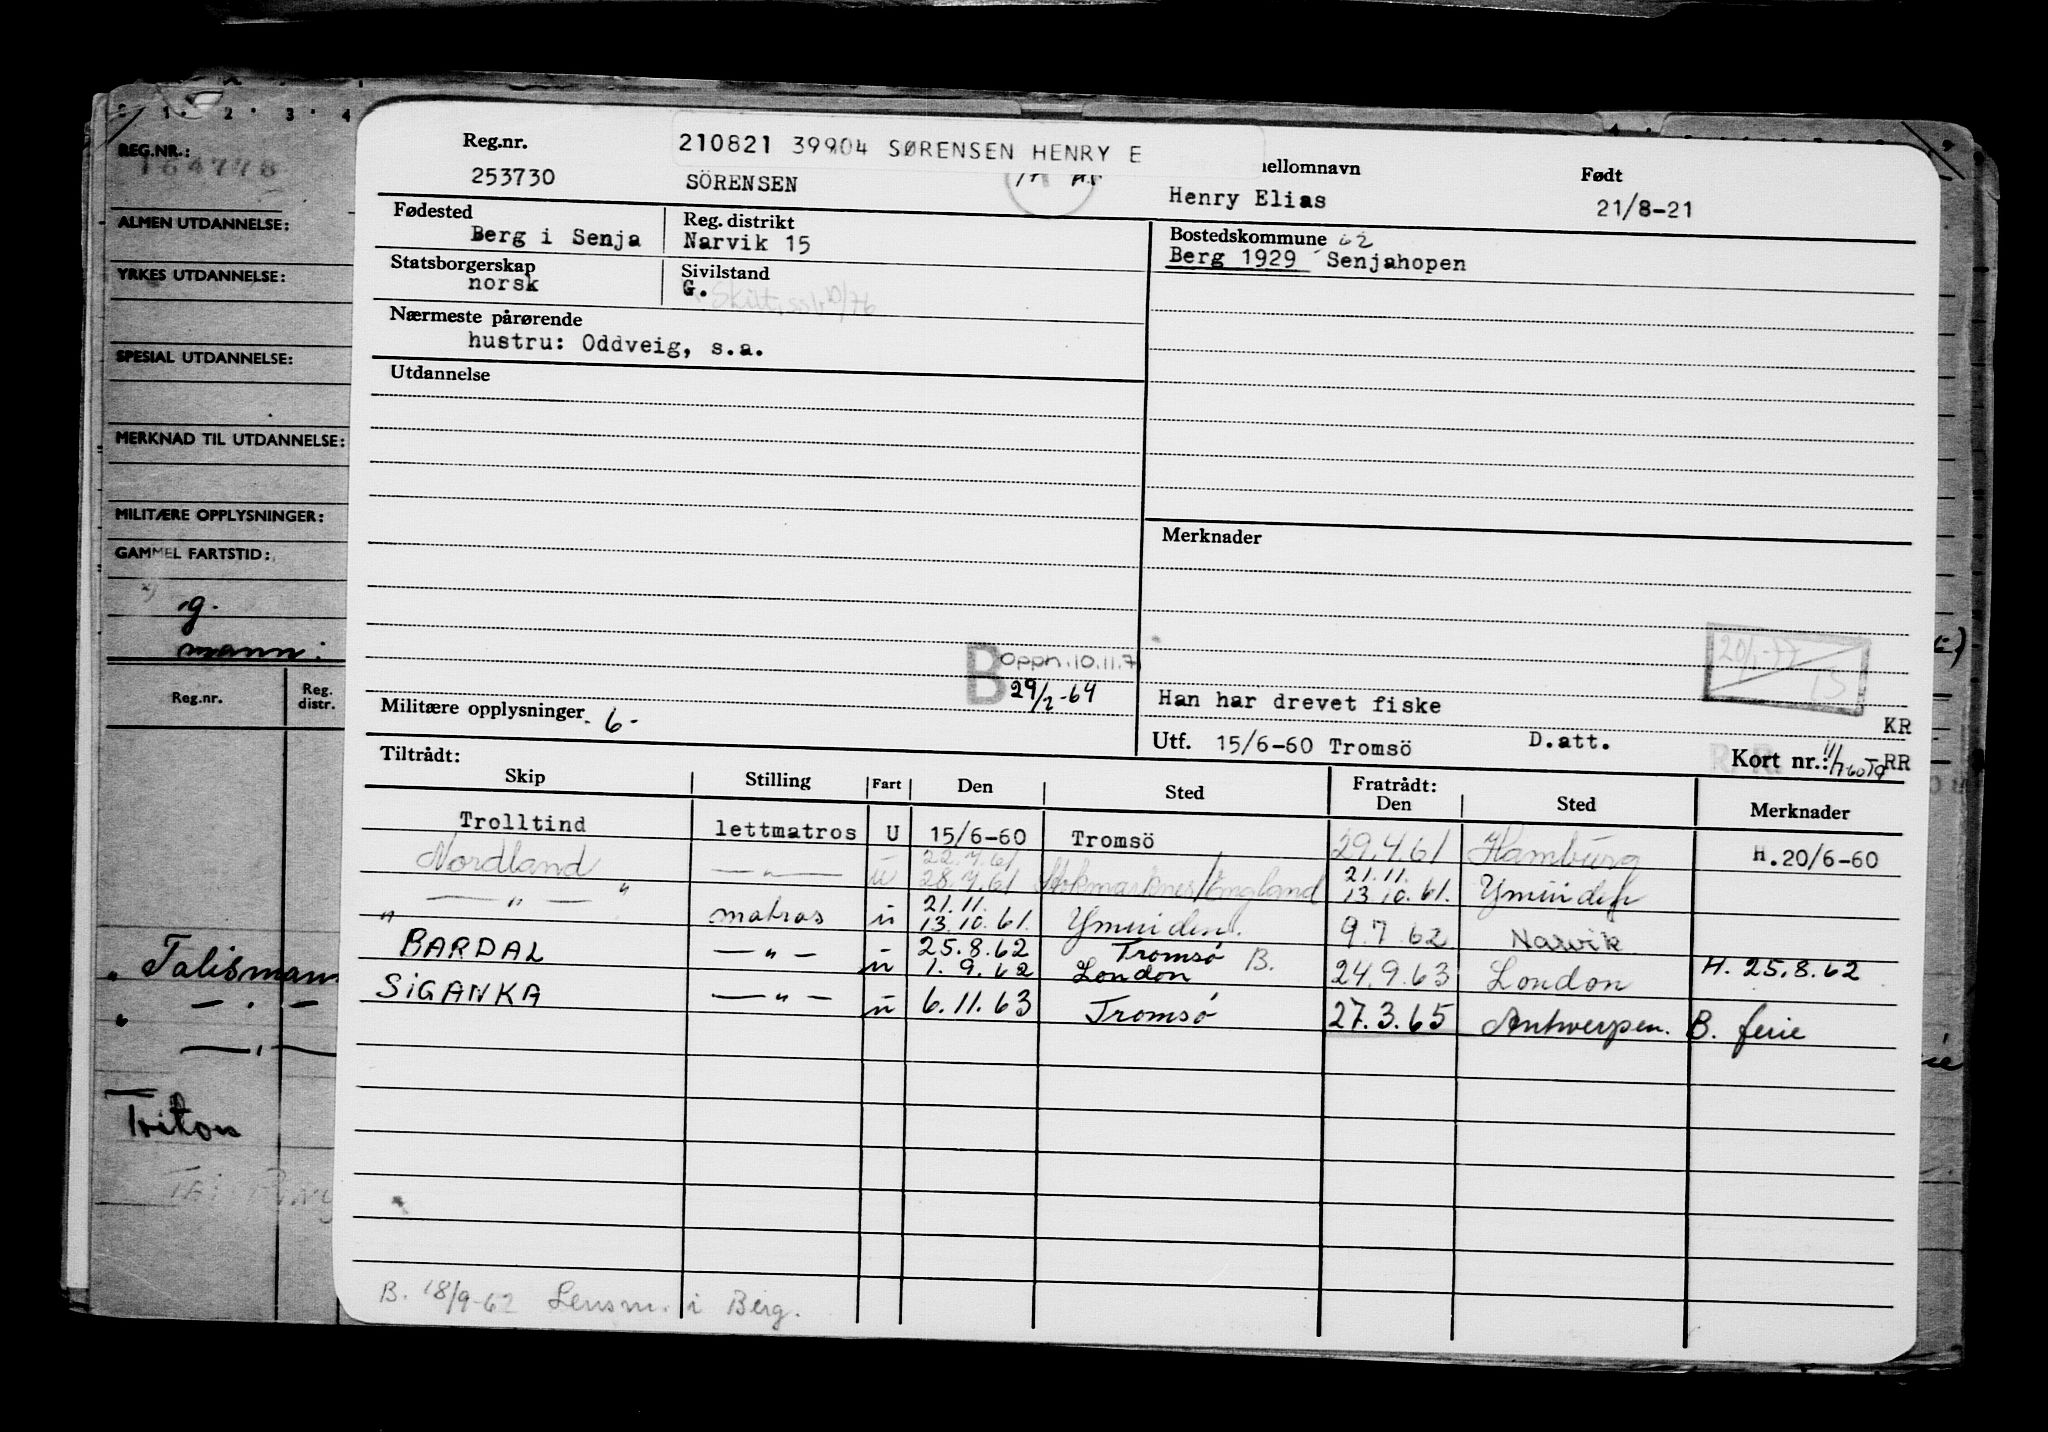 REG.NR.:
ALMEN UTDANNELSE:
YRKES UTDANNELSE:
SPESIAL UTDANNELSE:
MERKNAD TIL UTDANNELSE:
MILITÆRE OPPLYSNINGER:
GAMMEL FARTSTID:
g.
mann:
Reg.nr. Reg. distr.
" Talisman
— " —
Triton
Reg.nr. 210821 39904 SØRENSEN HENRY E ellomnavn Født
253730 SÖRENSEN Henry Elias 21/8-21
Fødested Reg. distrikt Bostedskommune 62
Berg i Senja Narvik 15 Berg 1929 Senjahopen
Statsborgerskap Sivilstand
norsk G.
Nærmeste pårørende
hustru: Oddveig, s.a.
Utdannelse
Merknader
20/1-77
15
B Oppn. 10.11.7
29/2-64
Militære opplysninger - 6 - Han har drevet fiske
KR
Utf. 15/6-60 Tromsö D.att. Kort nr.: RR
Tiltrådt: Fratrådt:
Skip Stilling Fart Den Sted Den Sted Merknader
Trolltind lettmatros U 15/6-60 Tromsö 29.4.61 Hamburg H.20/6-60
Nordland — " — u 22.7.61 28.7.61 Stokmarknes/England 21.11. 13.10.61. Ymuiden
— " — " matros u 21.11. 13.10.61. Ymuiden. 9.7.62 Narvik
BARDAL — " — u 25.8.62 1.9.62 Tromsø London B. 24.9.63 London H. 25.8.62
SIGANKA — " — u 6.11.63 Tromsø 27.3.65 Antwerpen. B. ferie
B. 18/9-62 Lensm. i Berg.